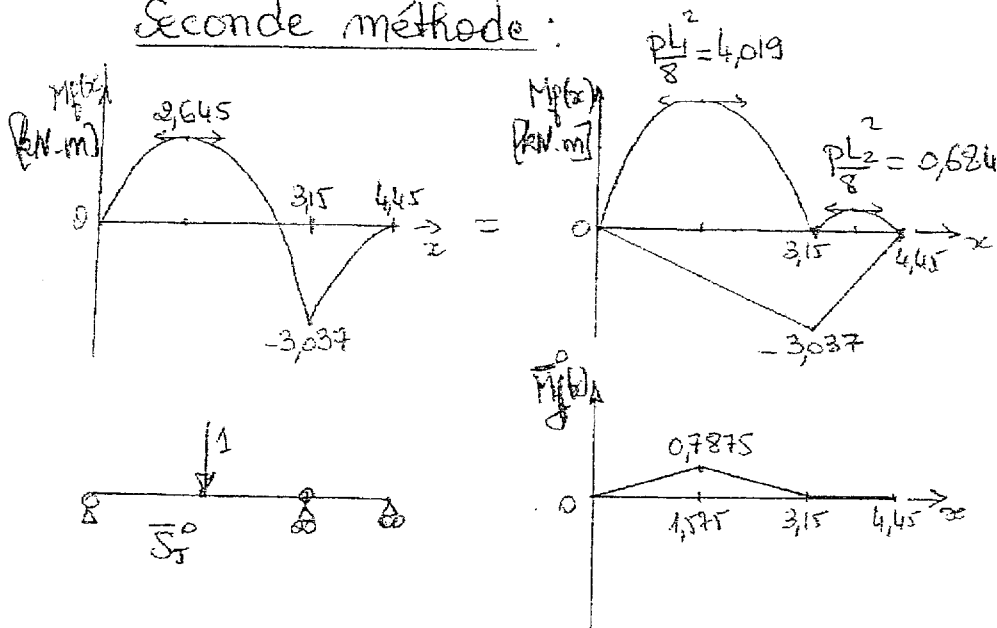 Seconde méthode :
Mf(x)
[kN.m]
2,645
0
3,15
4,45
x
-3,037
=
Mf(x)
[kN.m]
pL₁²/8 = 4,019
pL₂²/8 = 0,684
0
3,15
4,45
x
-3,037
1
S̄ᴵ⁰
M̄f⁰(x)
0,7875
0
1,575
3,15
4,45
x